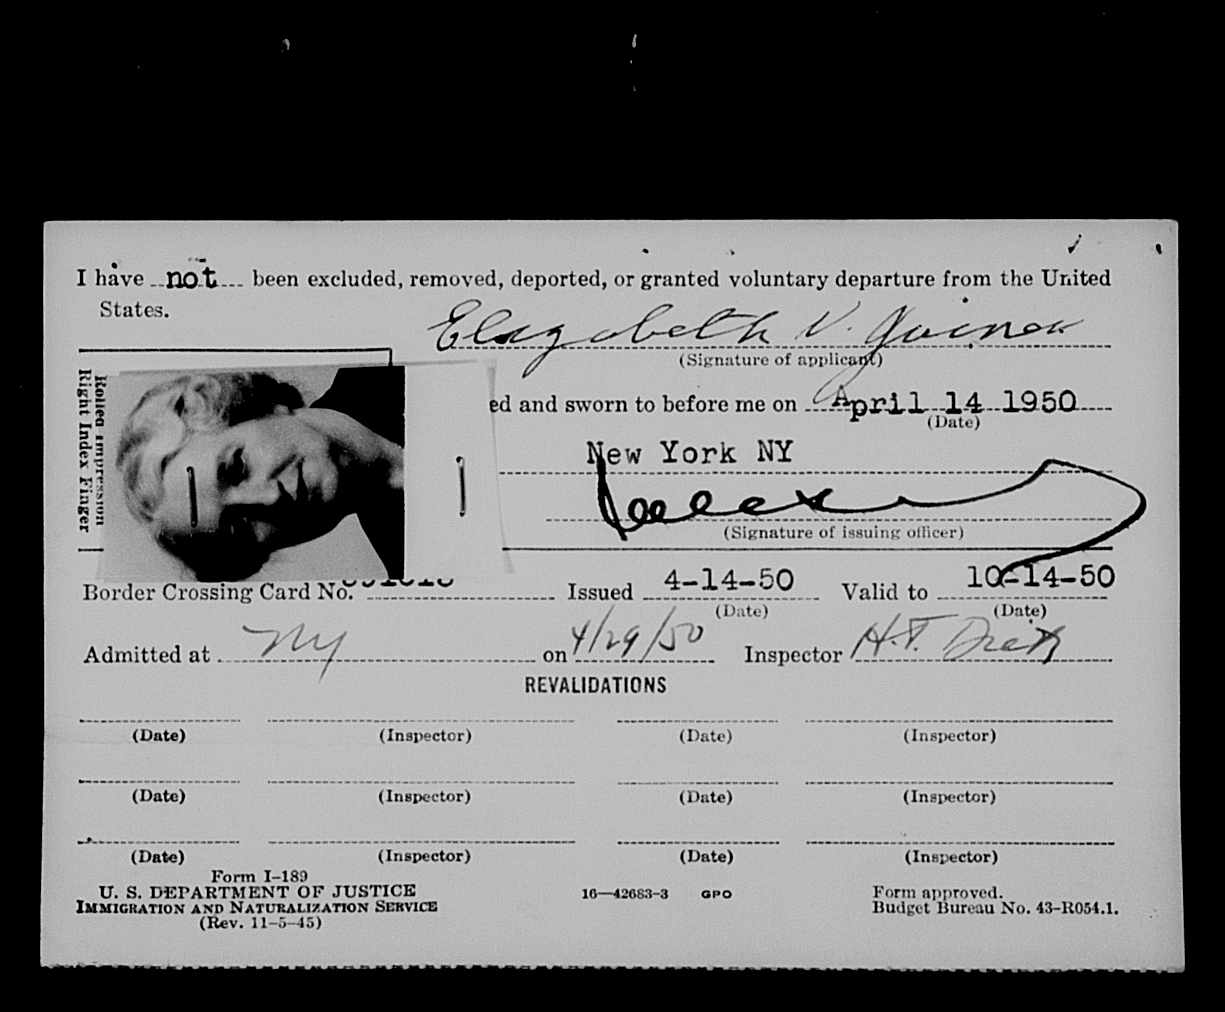 I have not been excluded, removed, deported, or granted voluntary departure from the United
States.
Elizabeth V.
(Signature of applicant)
Rolled impression
Right Index Finger
ed and sworn to before me on April 14 1950
(Date)
New York NY
(Signature of issuing officer)
Border Crossing Card No. Issued 4-14-50 Valid to 10-14-50
(Date) (Date)
Admitted at NY on 4/29/50 Inspector H.T.
REVALIDATIONS
(Date) (Inspector) (Date) (Inspector)
(Date) (Inspector) (Date) (Inspector)
(Date) (Inspector) (Date) (Inspector)
Form I-189
U. S. DEPARTMENT OF JUSTICE 16—42683-3 GPO Form approved.
IMMIGRATION AND NATURALIZATION SERVICE Budget Bureau No. 43-R054.1.
(Rev. 11-5-45)